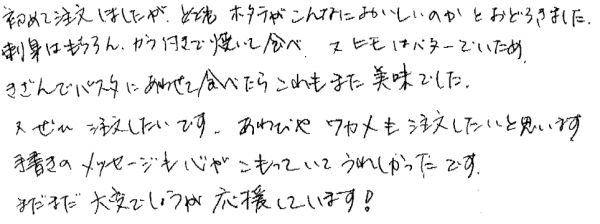 初めて注文しましたが、とてもホタテがこんなにおいしいのかとおどろきました。
刺身はもちろん、から付きで焼いて食べ、又ヒモはバターでいため、
きざんでパスタにあわせて食べたらこれもまた美味でした。
又ぜひ注文したいです。あわびやワカメも注文したいと思います
手書きのメッセージも心がこもっていてうれしかったです。
まだまだ大変でしょうが応援しています!